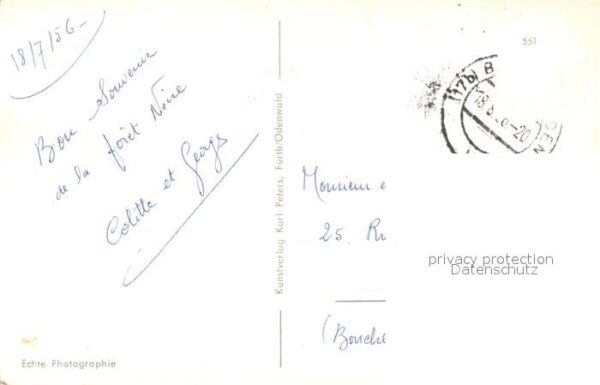 18/7/56
Bon Souvenir
de la forêt Noire
Colette et Georges
Echte Photographie
Kunstverlag Karl Peters, Fürth/Odenwald
551
(17b) B
18
-20
DEN
Monsieur
25. R
(Bouche
privacy protection
Datenschutz